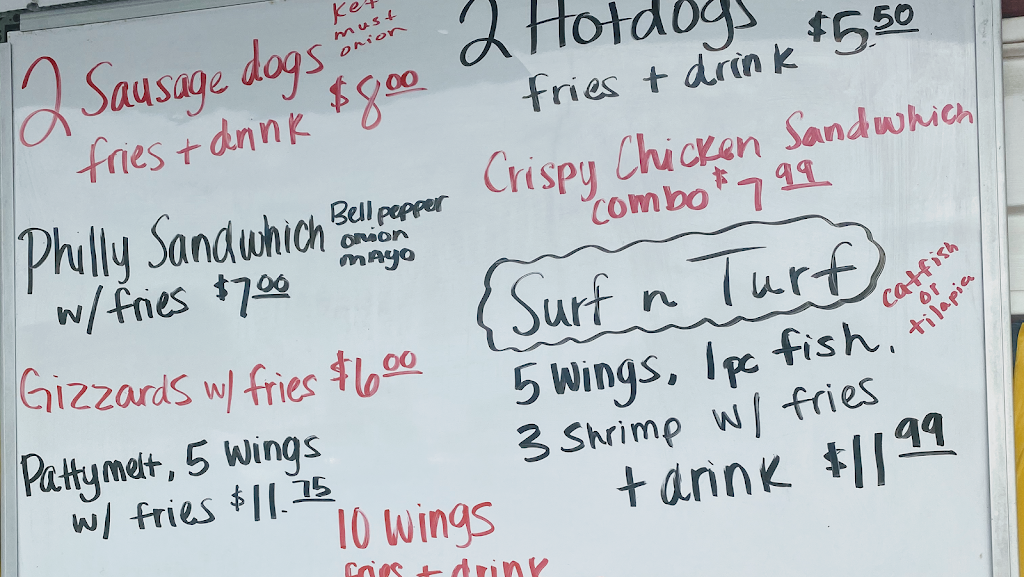 2 Sausage dogs
Ket
must
onion
fries + drink $8.00
Philly Sandwhich
Bell pepper
onion
mayo
w/ fries $7.00
Gizzards w/ fries $6.00
Pattymelt, 5 wings
w/ fries $11.75
10 wings
fries + drink
2 Hotdogs $5.50
fries + drink
Crispy Chicken Sandwhich
combo $7.99
Surf n Turf
catfish
or
tilapia
5 wings, 1pc fish,
3 Shrimp w/ fries
+ drink $11.99